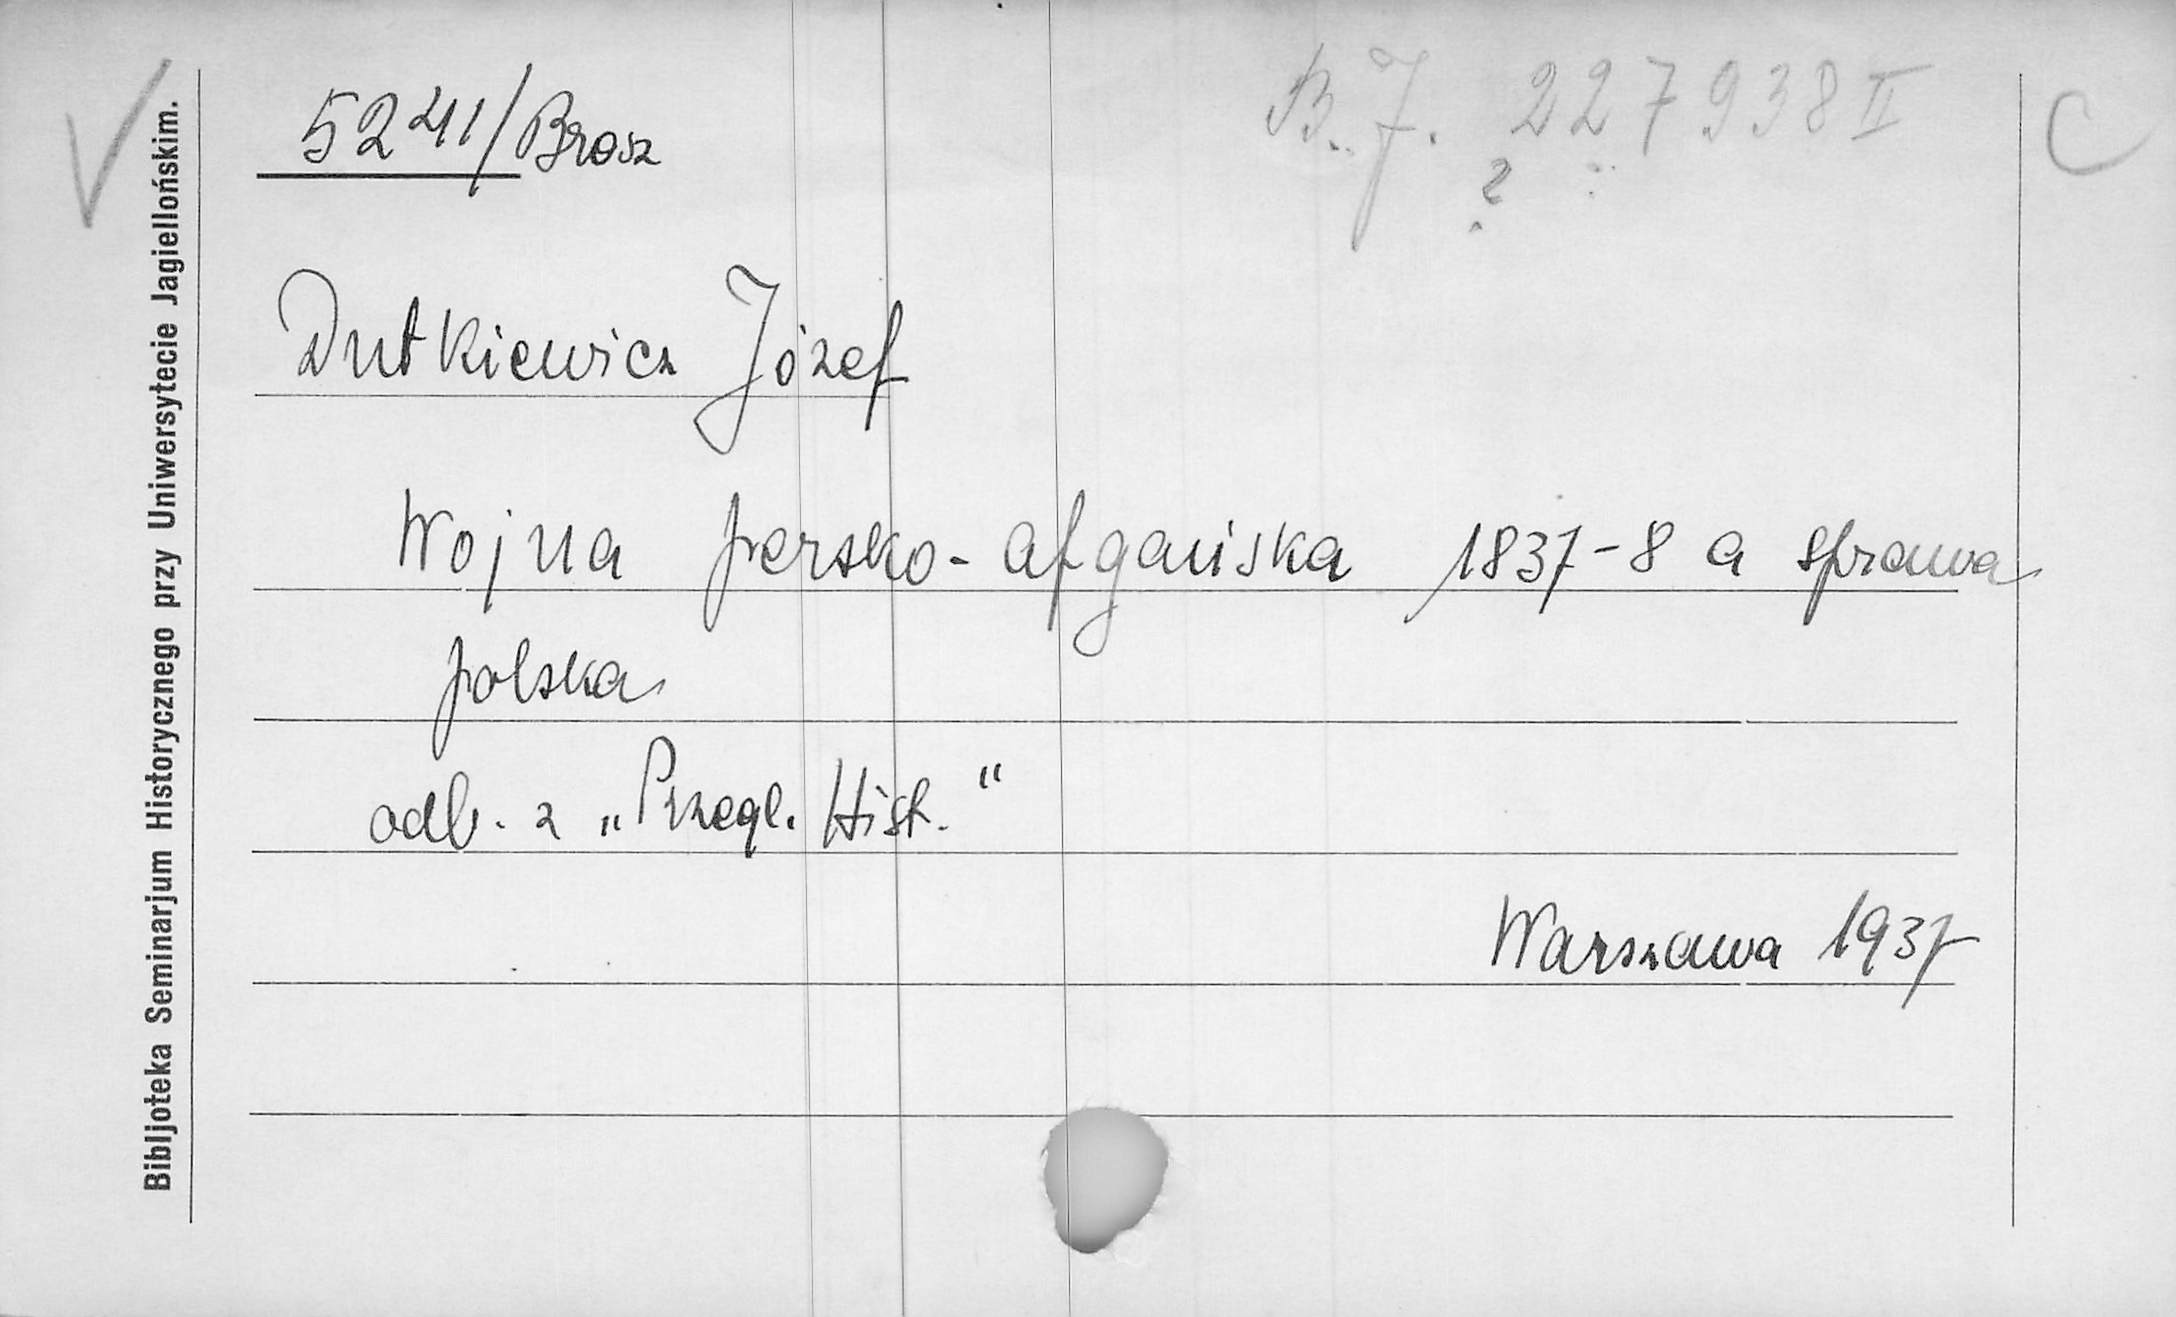 5241/Brosz
B.J. 227938 II
?
C
Dutkiewicz Józef
Wojna persko-afgańska 1837-8 a sprawa
polska
odb. z „Przegl. Hist.“
Warszawa 1937
Bibljoteka Seminarjum Historycznego przy Uniwersytecie Jagiellońskim.